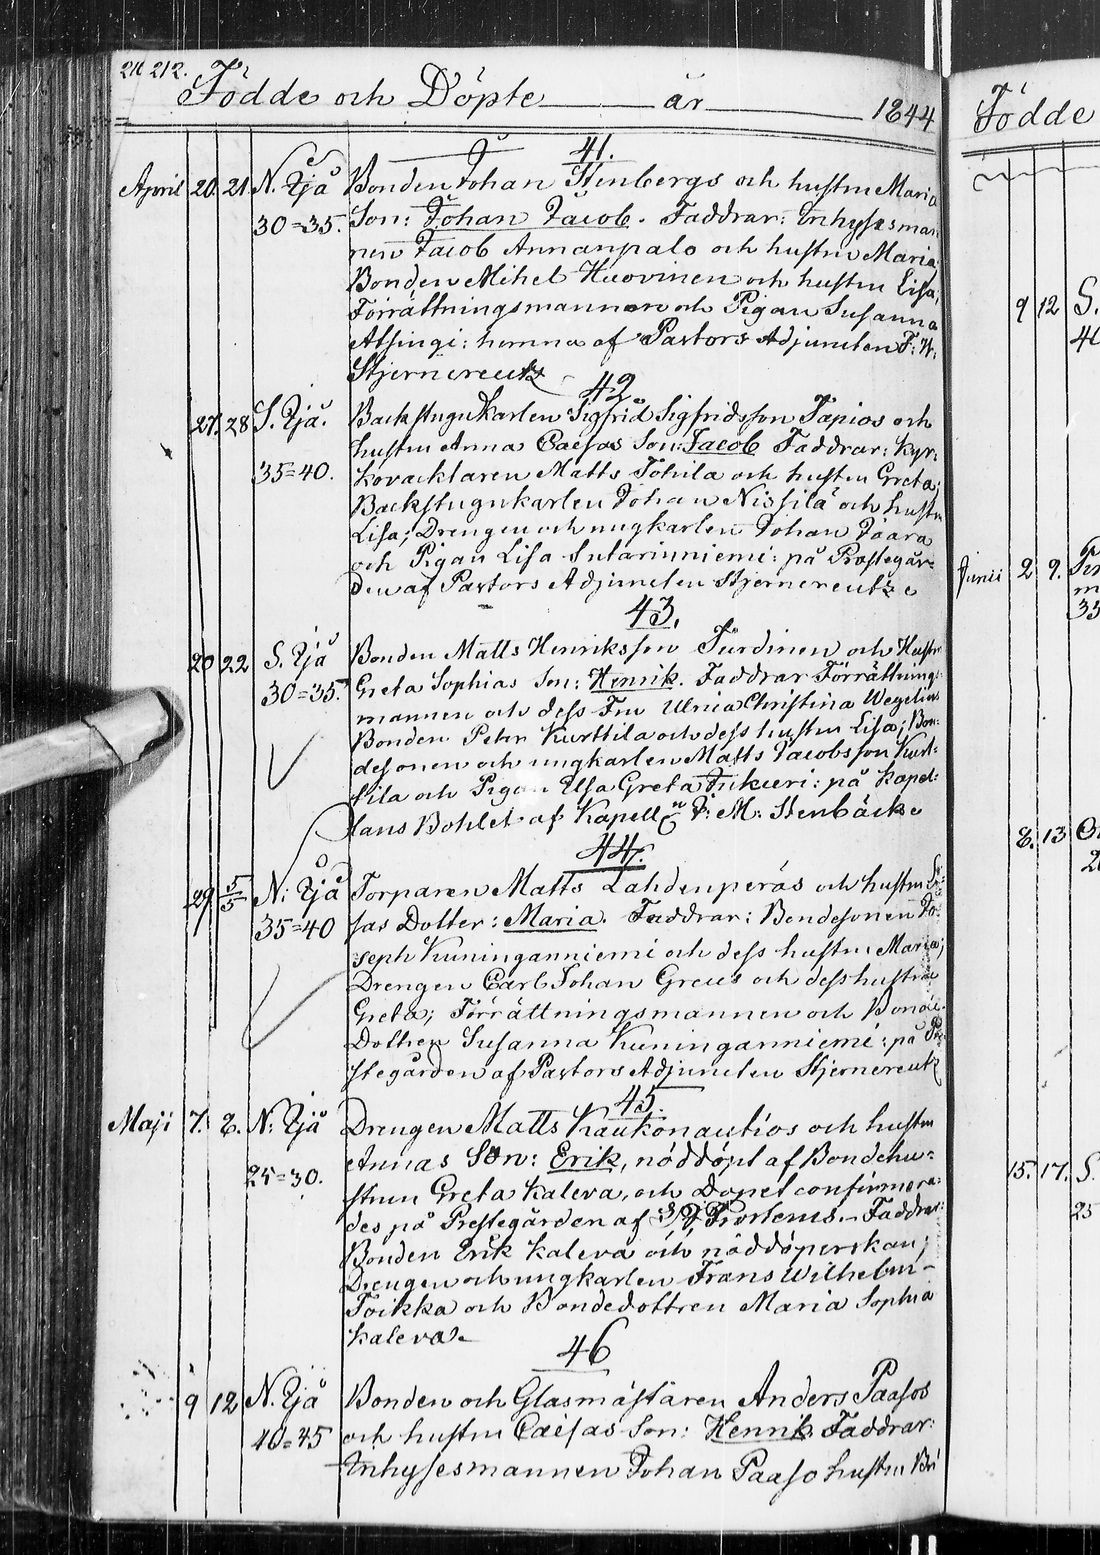 211 212.
Födde och Döpte år 1844
41.
April 20. 21. N. Ijå Bonden Johan Stenbergs och hustru Maria
30=35. Son: Johan Jacob. Faddrar: Inhysesman-
nen Jacob Annanpalo och hustru Maria
Bonden Mihel Huovinen och hustru Lisa;
Förrättningsmannen och Pigan Susanna
Alsingi: hemma af Pastors Adjuncten F: W:
Stjerncreutz
42
27. 28 S. Ijå. Backstugukarlen Sigfrid Sigfridsson Tapios och
hustru Anna Caisas Son: Jacob Faddrar: Kyr-
35=40. kovacktaren Matts Tohila och hustru Greta;
Backstugukarlen Johan Nissilä och hustru
Lisa; Drengen och ungkarlen Johan Jaara
och Pigan Lisa Sutarinniemi: på Prestegår-
den af Pastors Adjuncten Stjerncreutz
43.
20 22 S. Ijå Bonden Matts Henriksson Turdinen och Hustru
30=35. Greta Sophias Son: Henrik. Faddrar Förrättnings-
mannen och dess Fru Ulrica Christina Wegelius
Bonden Peter Kurttila och dess hustru Lisa; Bon-
desonen och ungkarlen Matts Jacobsson Kurt-
tila och Pigan Elsa Greta Jukuri: på Kapel-
lans Bohlet af Kapell: J: M: Stenbäck
44.
29 5/5 N: Ijå Torparen Matts Lahdenperäs och hustru Li-
35=40 sas Dotter: Maria. Faddrar: Bondesonen Jo-
seph Kuninganniemi och dess hustru Maria;
Drengen Carl Johan Greus och dess hustru
Greta; Förrättningsmannen och Bonde-
Dottren Susanna Kuninganniemi: på Pre-
stegården af Pastors Adjuncten Stjerncreutz
45.
Maji 7. 8. N: Ijå Drengen Matts Kaukonautios och hustru
Annas Son: Erik, nöddöpt af Bondehu-
25=30. strun Greta Kaleva, och Dopet confirmera-
des på Prestegården af Faddrar:
Bonden Erik Kaleva och nöddöperskan;
Drengen och ungkarlen Frans Wilhelm
Toikka och Bondedottren Maria Sophia
Kaleva.
46
9 12 N. Ijå Bonden och Glasmästaren Anders Paasos
40=45 och hustru Caisas Son: Henrik. Faddrar:
Inhysesmannen Johan Paaso hustru Bri
Födde
9 12 S.
40
Junii 2 9.
35
8. 13
15. 17. S.
25